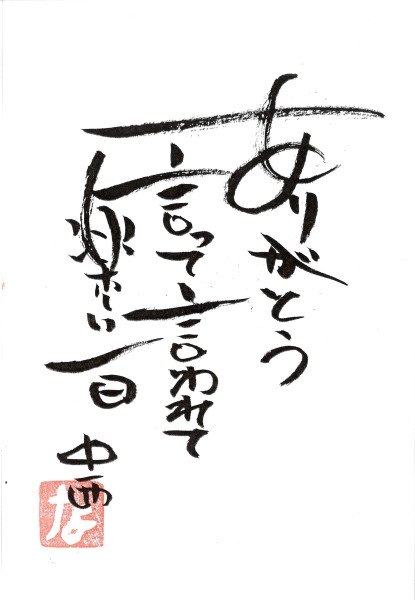 ありがとう
言って言われて
楽しい一日
中西
な